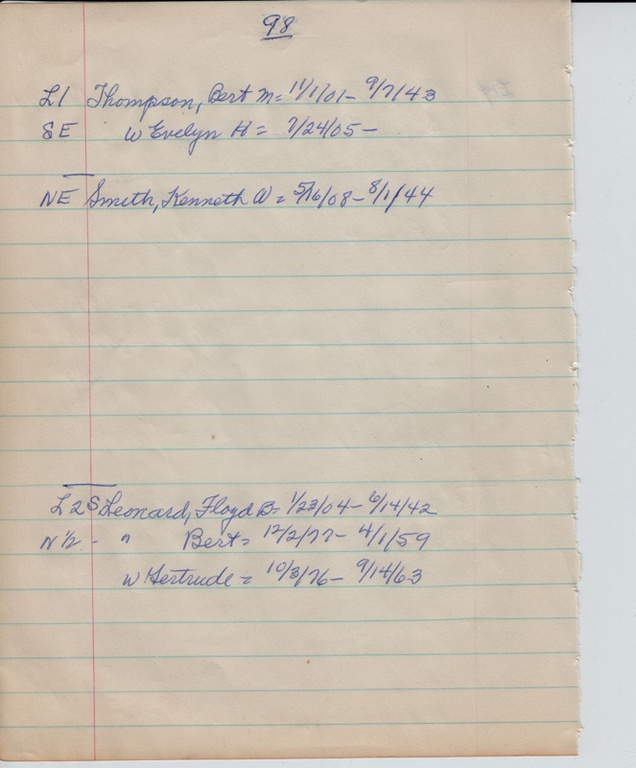 98
L1 Thompson, Bert M = 11/1/01 - 9/7/43
SE W Evelyn H = 7/24/05 -
NE Smith, Kenneth W = 5/16/08 - 8/1/44
L2S Leonard, Floyd B = 1/23/04 - 6/14/42
N 1/2 - " Bert = 12/2/77 - 4/1/59
W Gertrude = 10/3/76 - 9/14/63